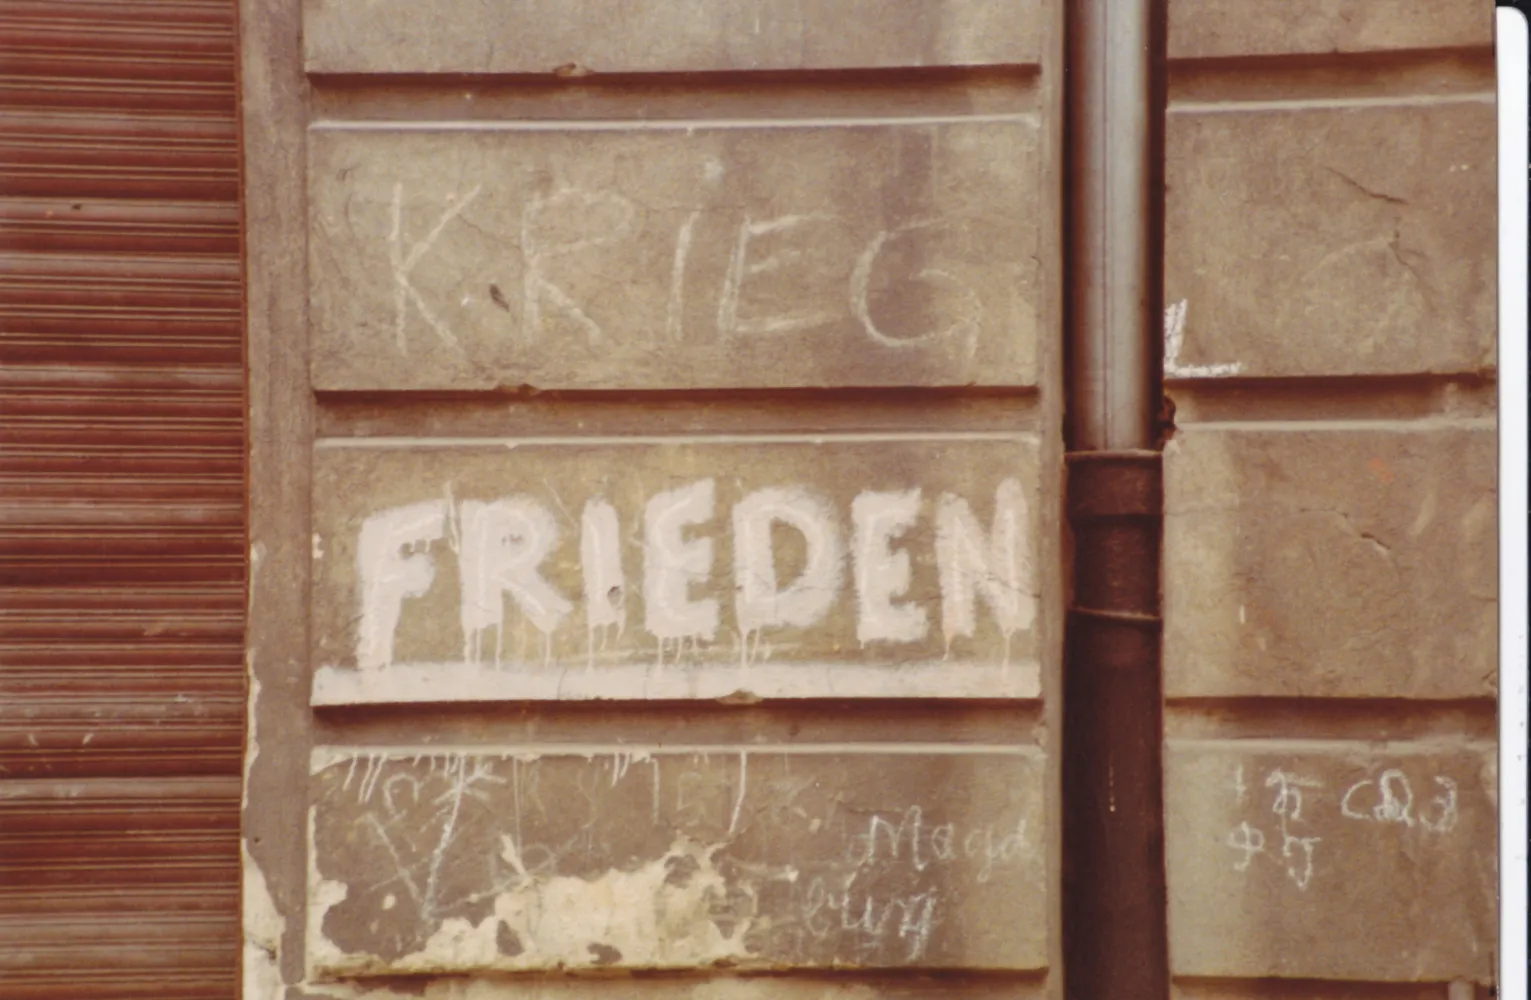 KRIEG
FRIEDEN
Magd
burg